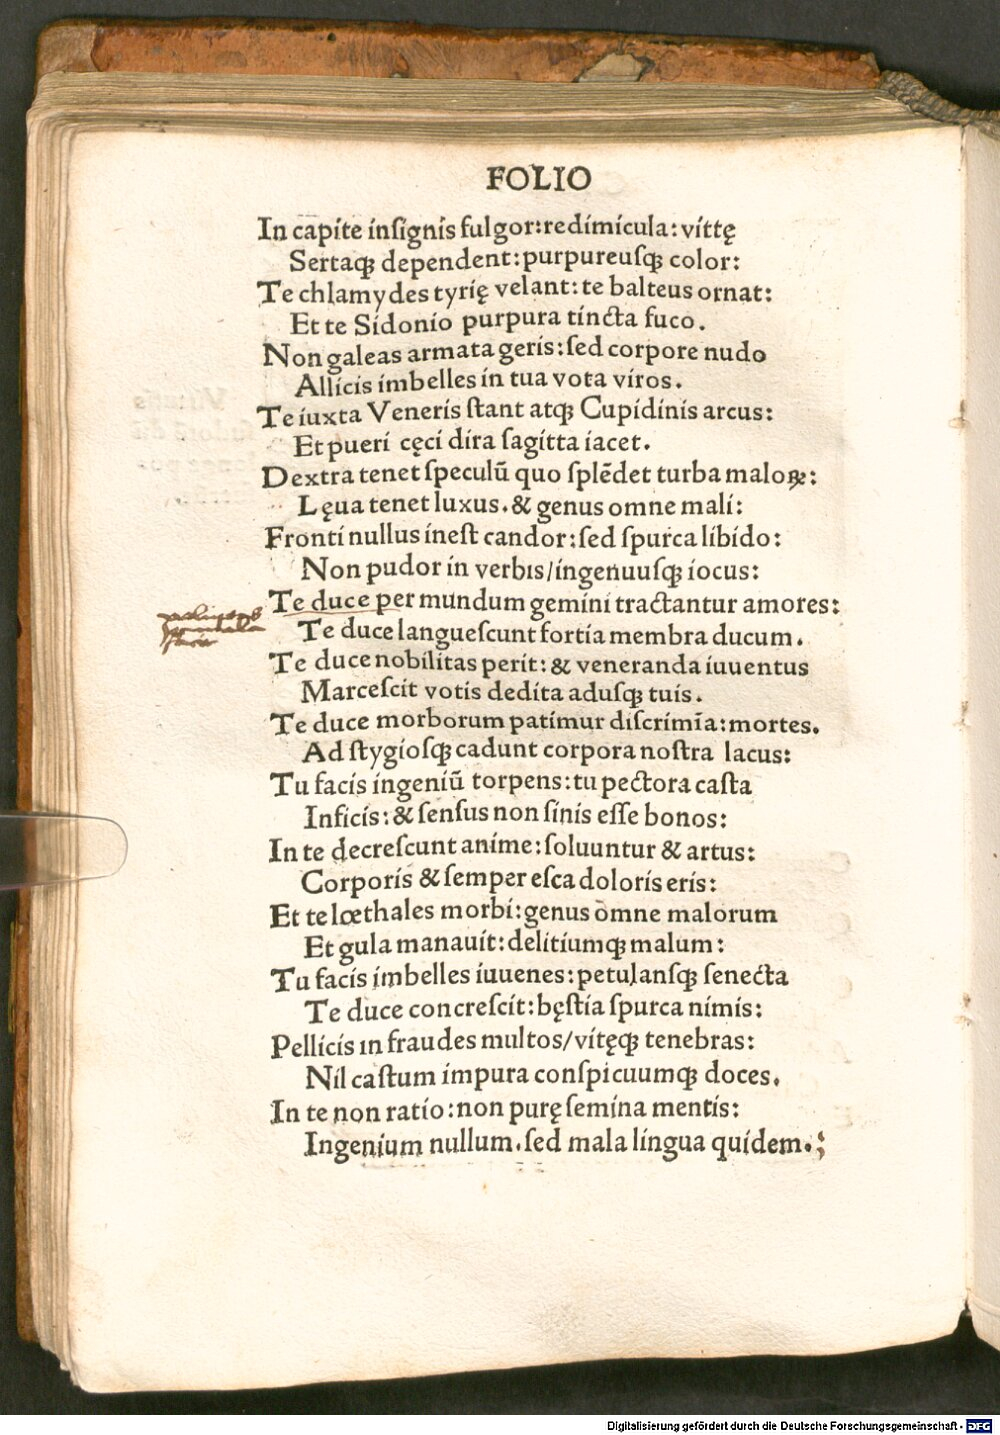 FOLIO
In capite insignis fulgor:redimicula:vittę
Sertaqꝫ dependent:purpureusqꝫ color:
Te chlamydes tyrię velant:te balteus ornat:
Et te Sidonio purpura tincta fuco.
Non galeas armata geris:sed corpore nudo
Allicis imbelles in tua vota viros.
Te iuxta Veneris stant atqꝫ Cupidinis arcus:
Et pueri cęci dira sagitta iacet.
Dextra tenet speculū quo splēdet turba maloꝝ:
Lęua tenet luxus.& genus omne mali:
Fronti nullus inest candor:sed spurca libido:
Non pudor in verbis/ingenuusqꝫ iocus:
Te duce per mundum gemini tractantur amores:
Te duce languescunt fortia membra ducum.
Te duce nobilitas perit:& veneranda iuuentus
Marcescit votis dedita adusqꝫ tuis.
Te duce morborum patimur discrimīa:mortes.
Ad stygiosqꝫ cadunt corpora nostra lacus:
Tu facis ingeniū torpens:tu pectora casta
Inficis:& sensus non sinis esse bonos:
In te decrescunt anime:soluuntur & artus:
Corporis & semper esca doloris eris:
Et te lœthales morbi:genus omne malorum
Et gula manauit:delitiumqꝫ malum:
Tu facis imbelles iuuenes:petulansqꝫ senecta
Te duce concrescit:bęstia spurca nimis:
Pellicis in fraudes multos/vitęqꝫ tenebras:
Nil castum impura conspicuumqꝫ doces.
In te non ratio:non purę semina mentis:
Ingenium nullum.sed mala lingua quidem.;
Digitalisierung gefördert durch die Deutsche Forschungsgemeinschaft - DFG